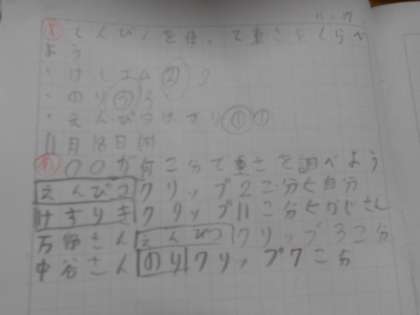 てんびんを使って重さをくらべ
よう
・けしゴム②
・のり
・えんぴつけずり
11月18日
〇〇が何こ分で重さを調べよう
えんぴつクリップ2こ分と自分
けずりきクリップ11こ分と
さんえんぴつクリップ3こ分
中谷さんのりクリップ7こ分